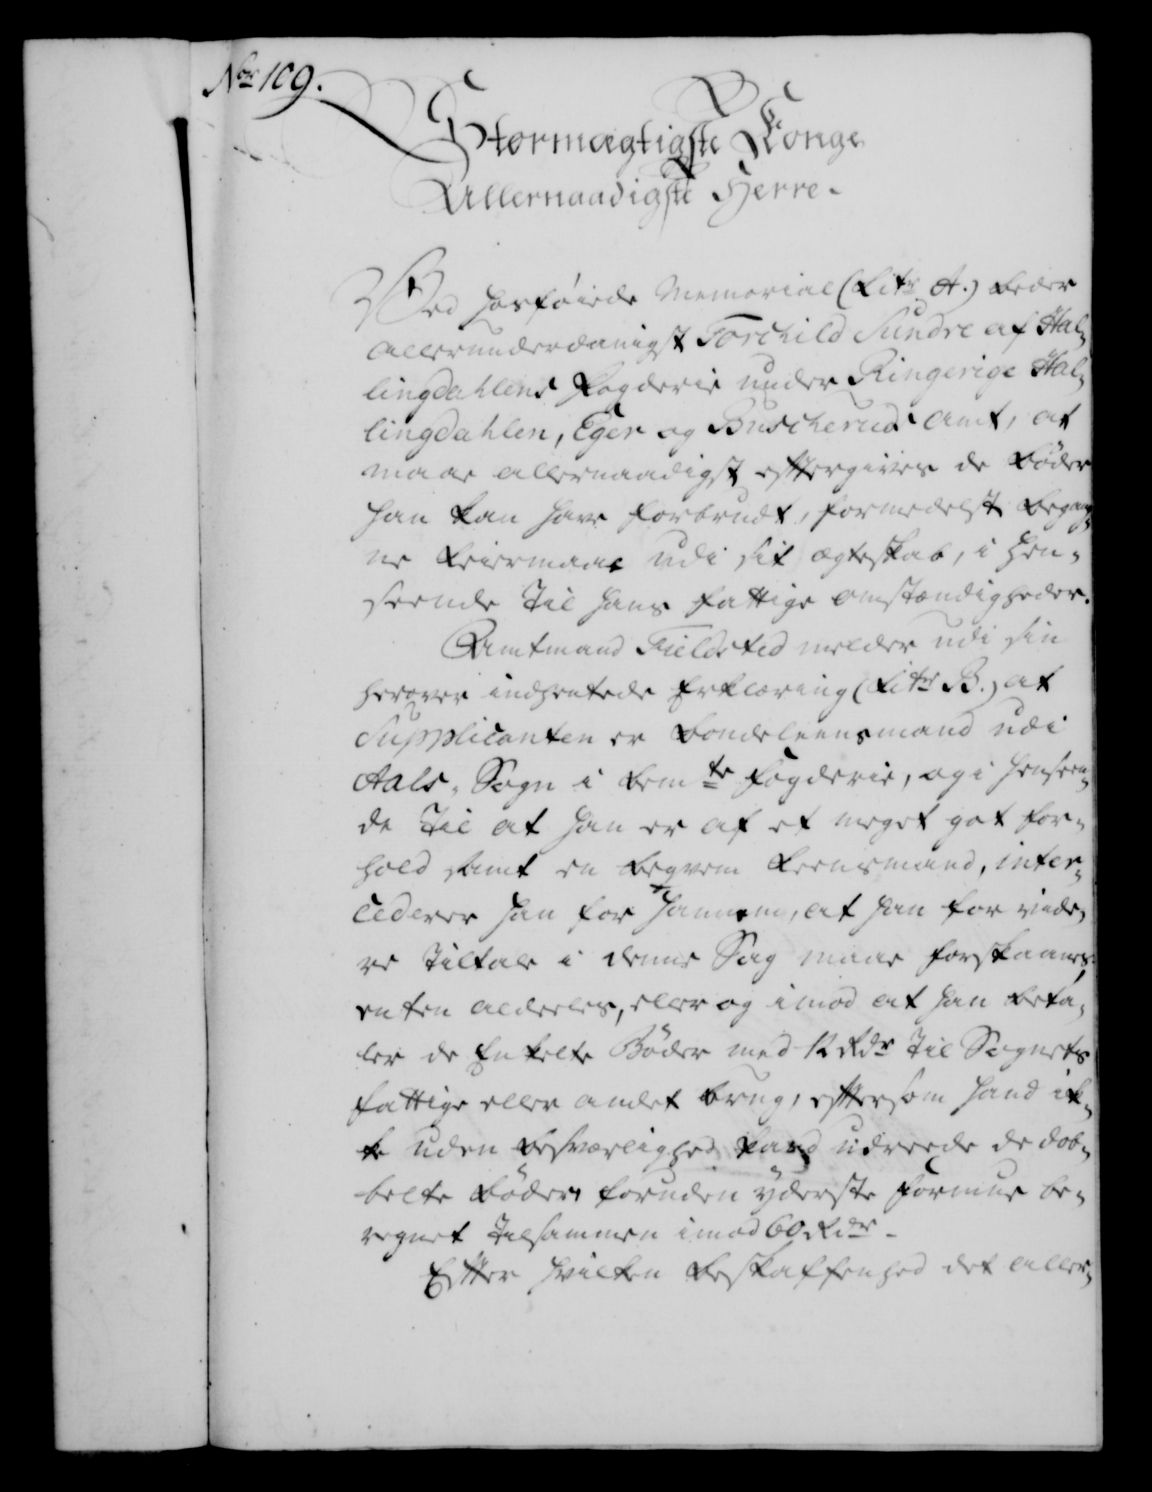 No. 109.
Stormægtigste Konge
Allernaadigste Herre.
Ved hosføiede Memorial (Litr A.) beder
allerunderdanigst Torchild Sundre af Hal-
lingdahlens Fogderie under Ringerige Hal-
lingdahlen, Eger og Buscheruds Amt, at
maae allernaadigst eftergives de Bøder
han kan have forbrudt, formedelst begang-
ne Leiermaal udi sit ægteskab, i Hen-
seende til hans fattige omstændigheder.
Amtmand Fieldsted melder udi sin
herover indhentede Erklæring (Litr B.) at
Supplicanten er Bondeleensmand udi
Aals-Sogn i bemte Fogderie, og i henseen-
de til at han er af et meget got for-
hold samt en beqvem Leensmand, inter-
cederer han for hannem, at han for vide-
re tiltale i denne Sag maae forskaanes
enten aldeeles, eller og imod at han beta-
ler de Enkelte Bøder med 12 Rdr til Sognets
fattige eller andet brug, eftersom hand ik-
ke uden besværlighed kand udreede de dob-
belte Bøder foruden yderste formue be-
regnet tilsammen imod 60 Rdr -
Efter hvilken beskaffenhed det aller-